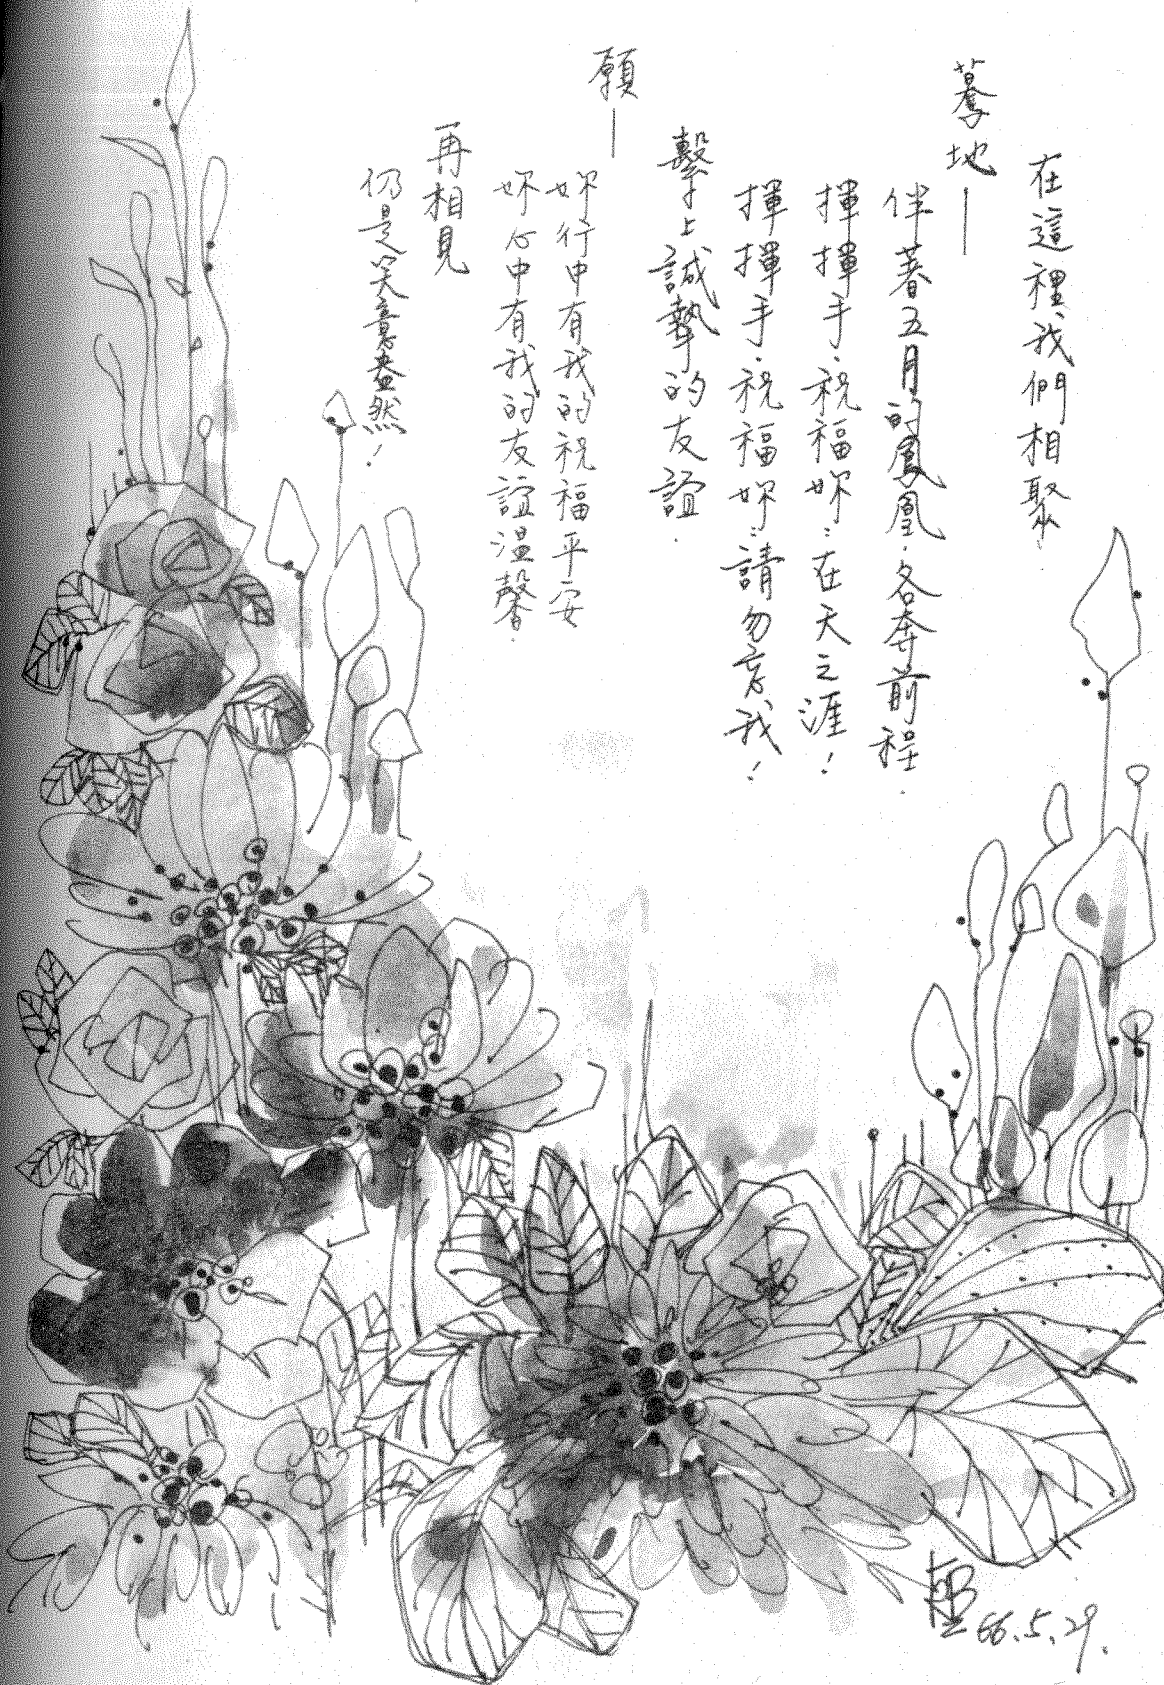 在這裡我們相聚.
驀地—
伴著五月的鳳凰.各奔前程.
揮揮手.祝福妳:在天之涯!
揮揮手.祝福妳:請勿忘我!
繫上誠摯的友誼.
願—
妳行中有我的祝福平安
妳心中有我的友誼溫馨.
再相見
仍是笑意盎然!
66.5.29.